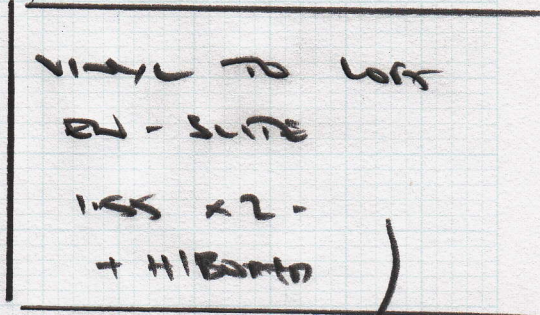 VINYL TO LOFT
EN-SUITE
1.55 x 2 -
+ H/BOARD